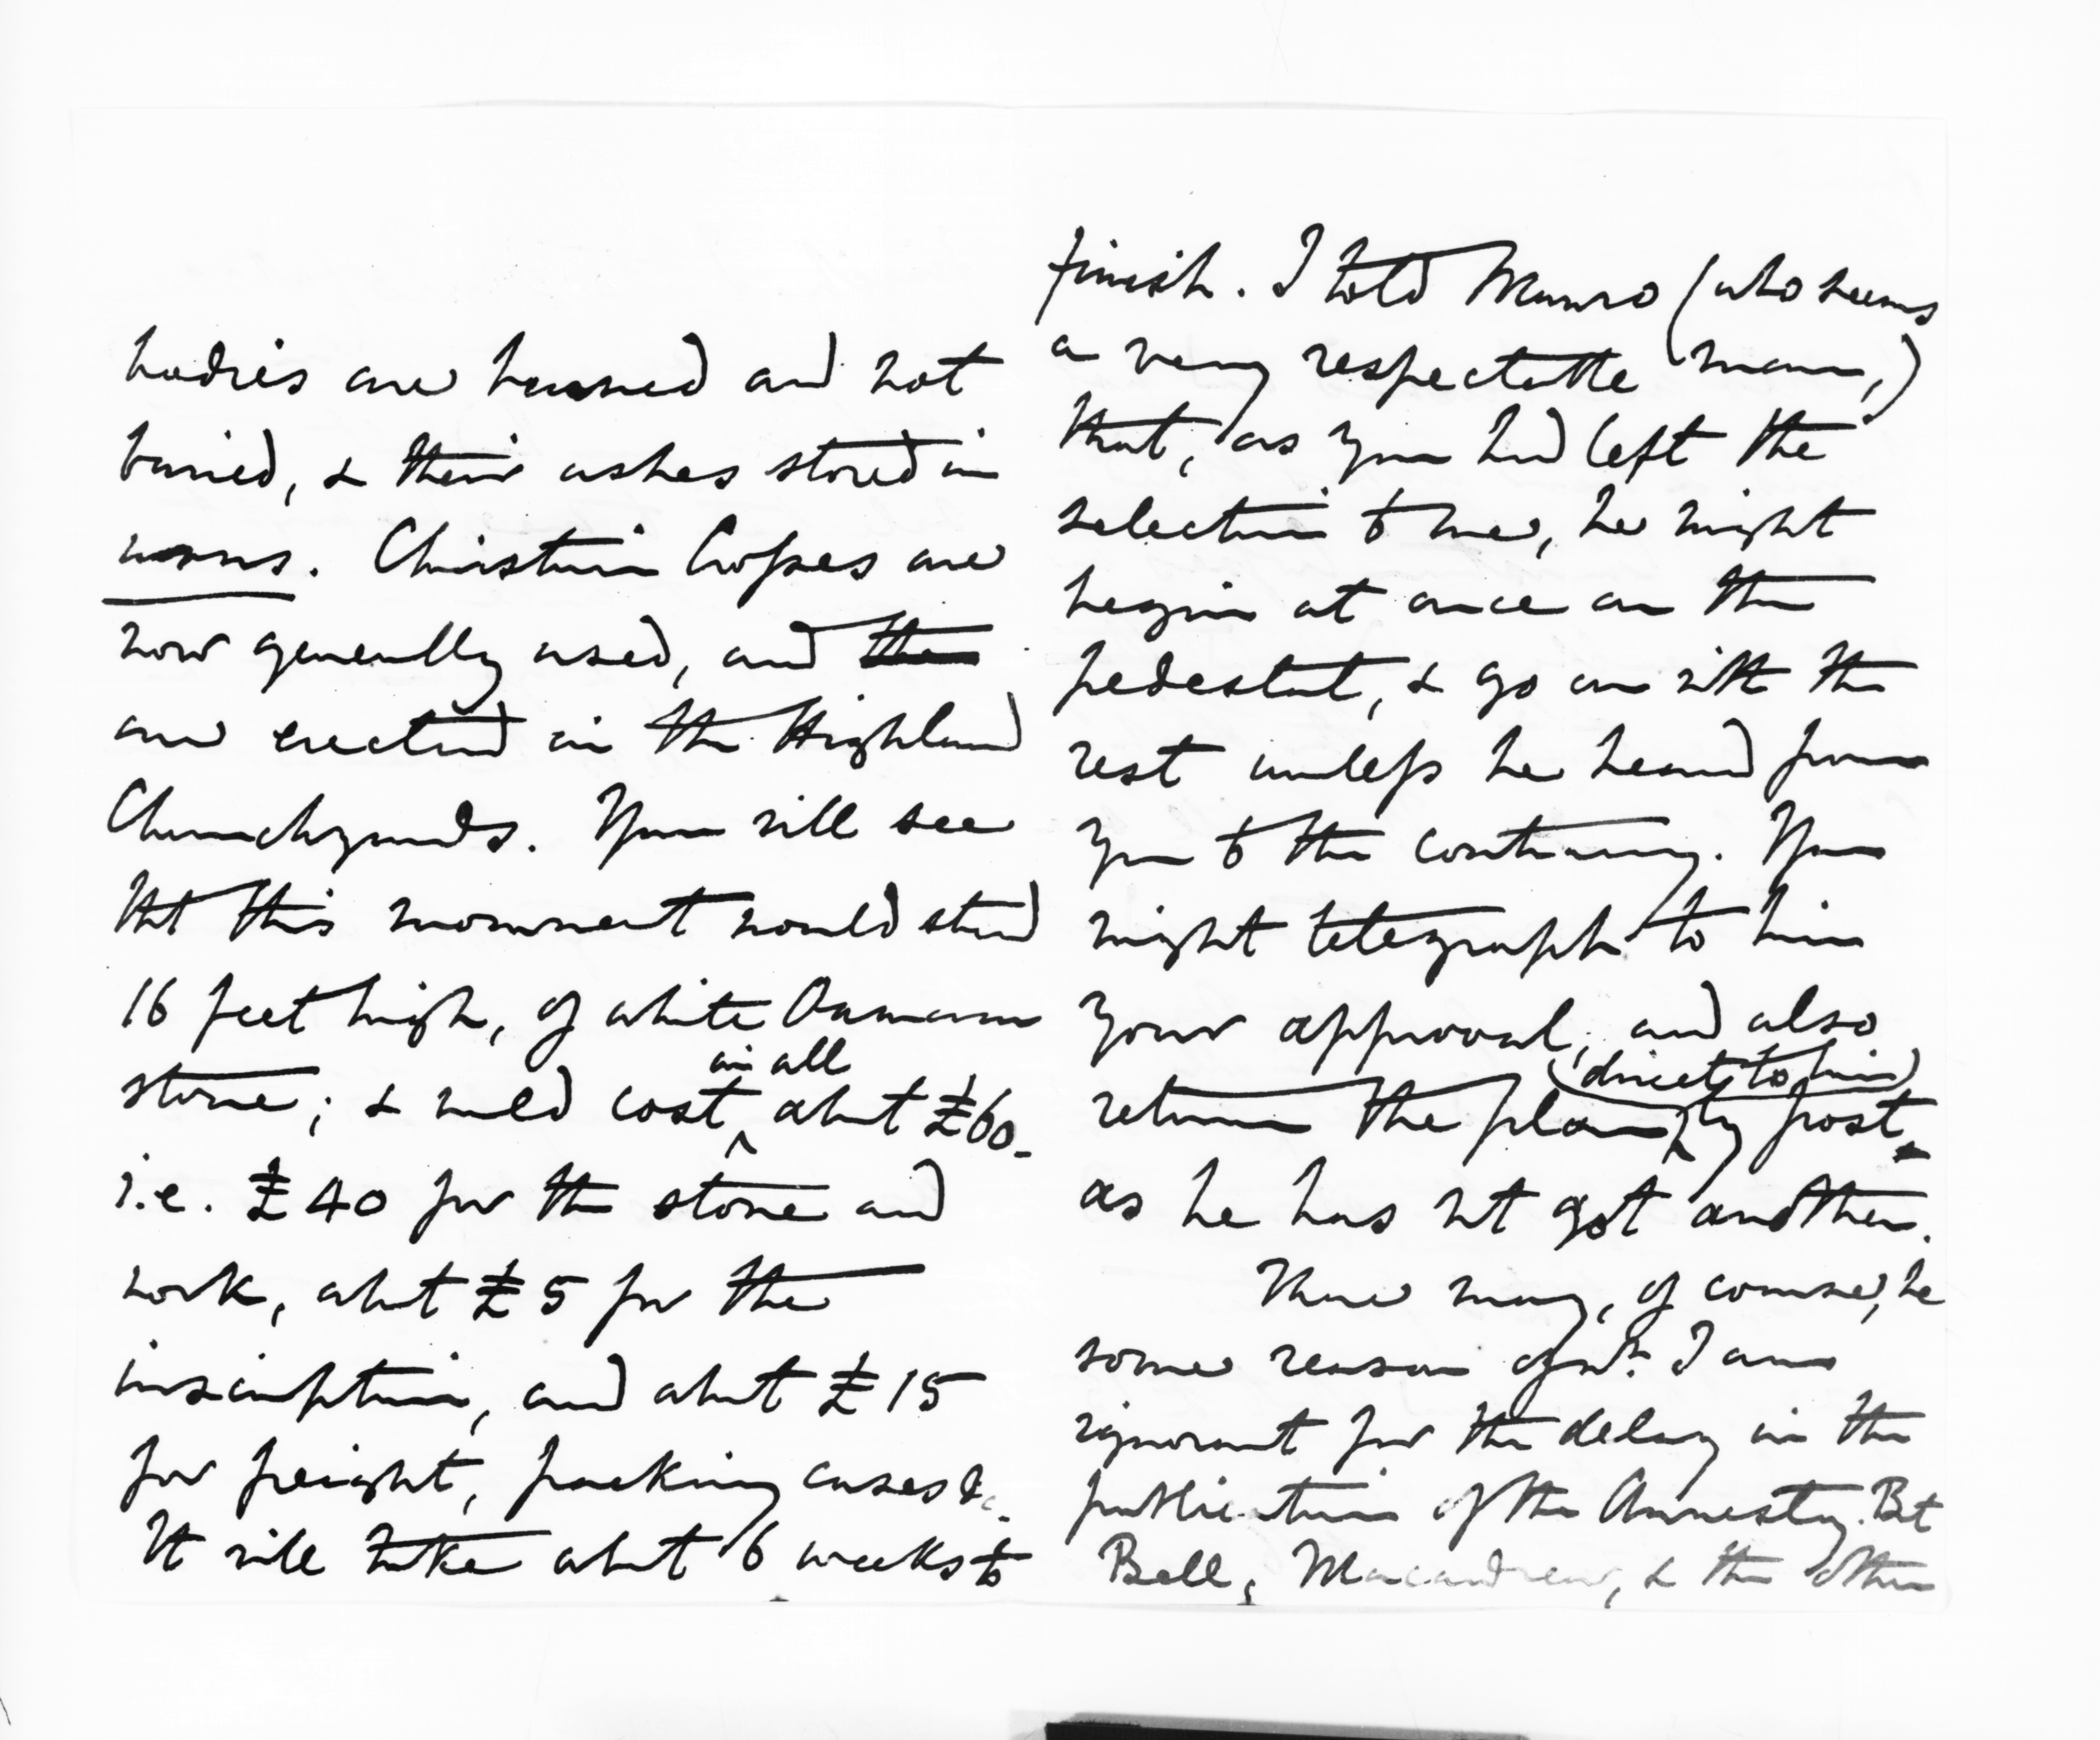 bodies are burned and not
buried, & their ashes stored in
urns. Christian Crosses are
now generally used, and the
are erected in the Highland
Churchyards. You will see
tht this monument would stand
16 feet high, of white Oamaru
stone; & would cost in all abut £60_
i.e. £40 for the stone and
work, abut £5 for the
inscription, and abut £15
for freight, packing cases &c.
It will take abut 6 weeks to
finish. I told Munro (who seems
a very respectable man,)
that, as you had left the
selection to me, he might
begin at once on the
pedestal, & go on with the
rest unless he heard from
you to the contrary. You
might telegraph to him
your approval, and also
return the plan (direct to him) by post_
as he has nt got another.
There may, of course, be
some reason of wh. I am
ignorant for the delay in the
publication of the Amnesty. Bt
Bell, Macandrew, & the other